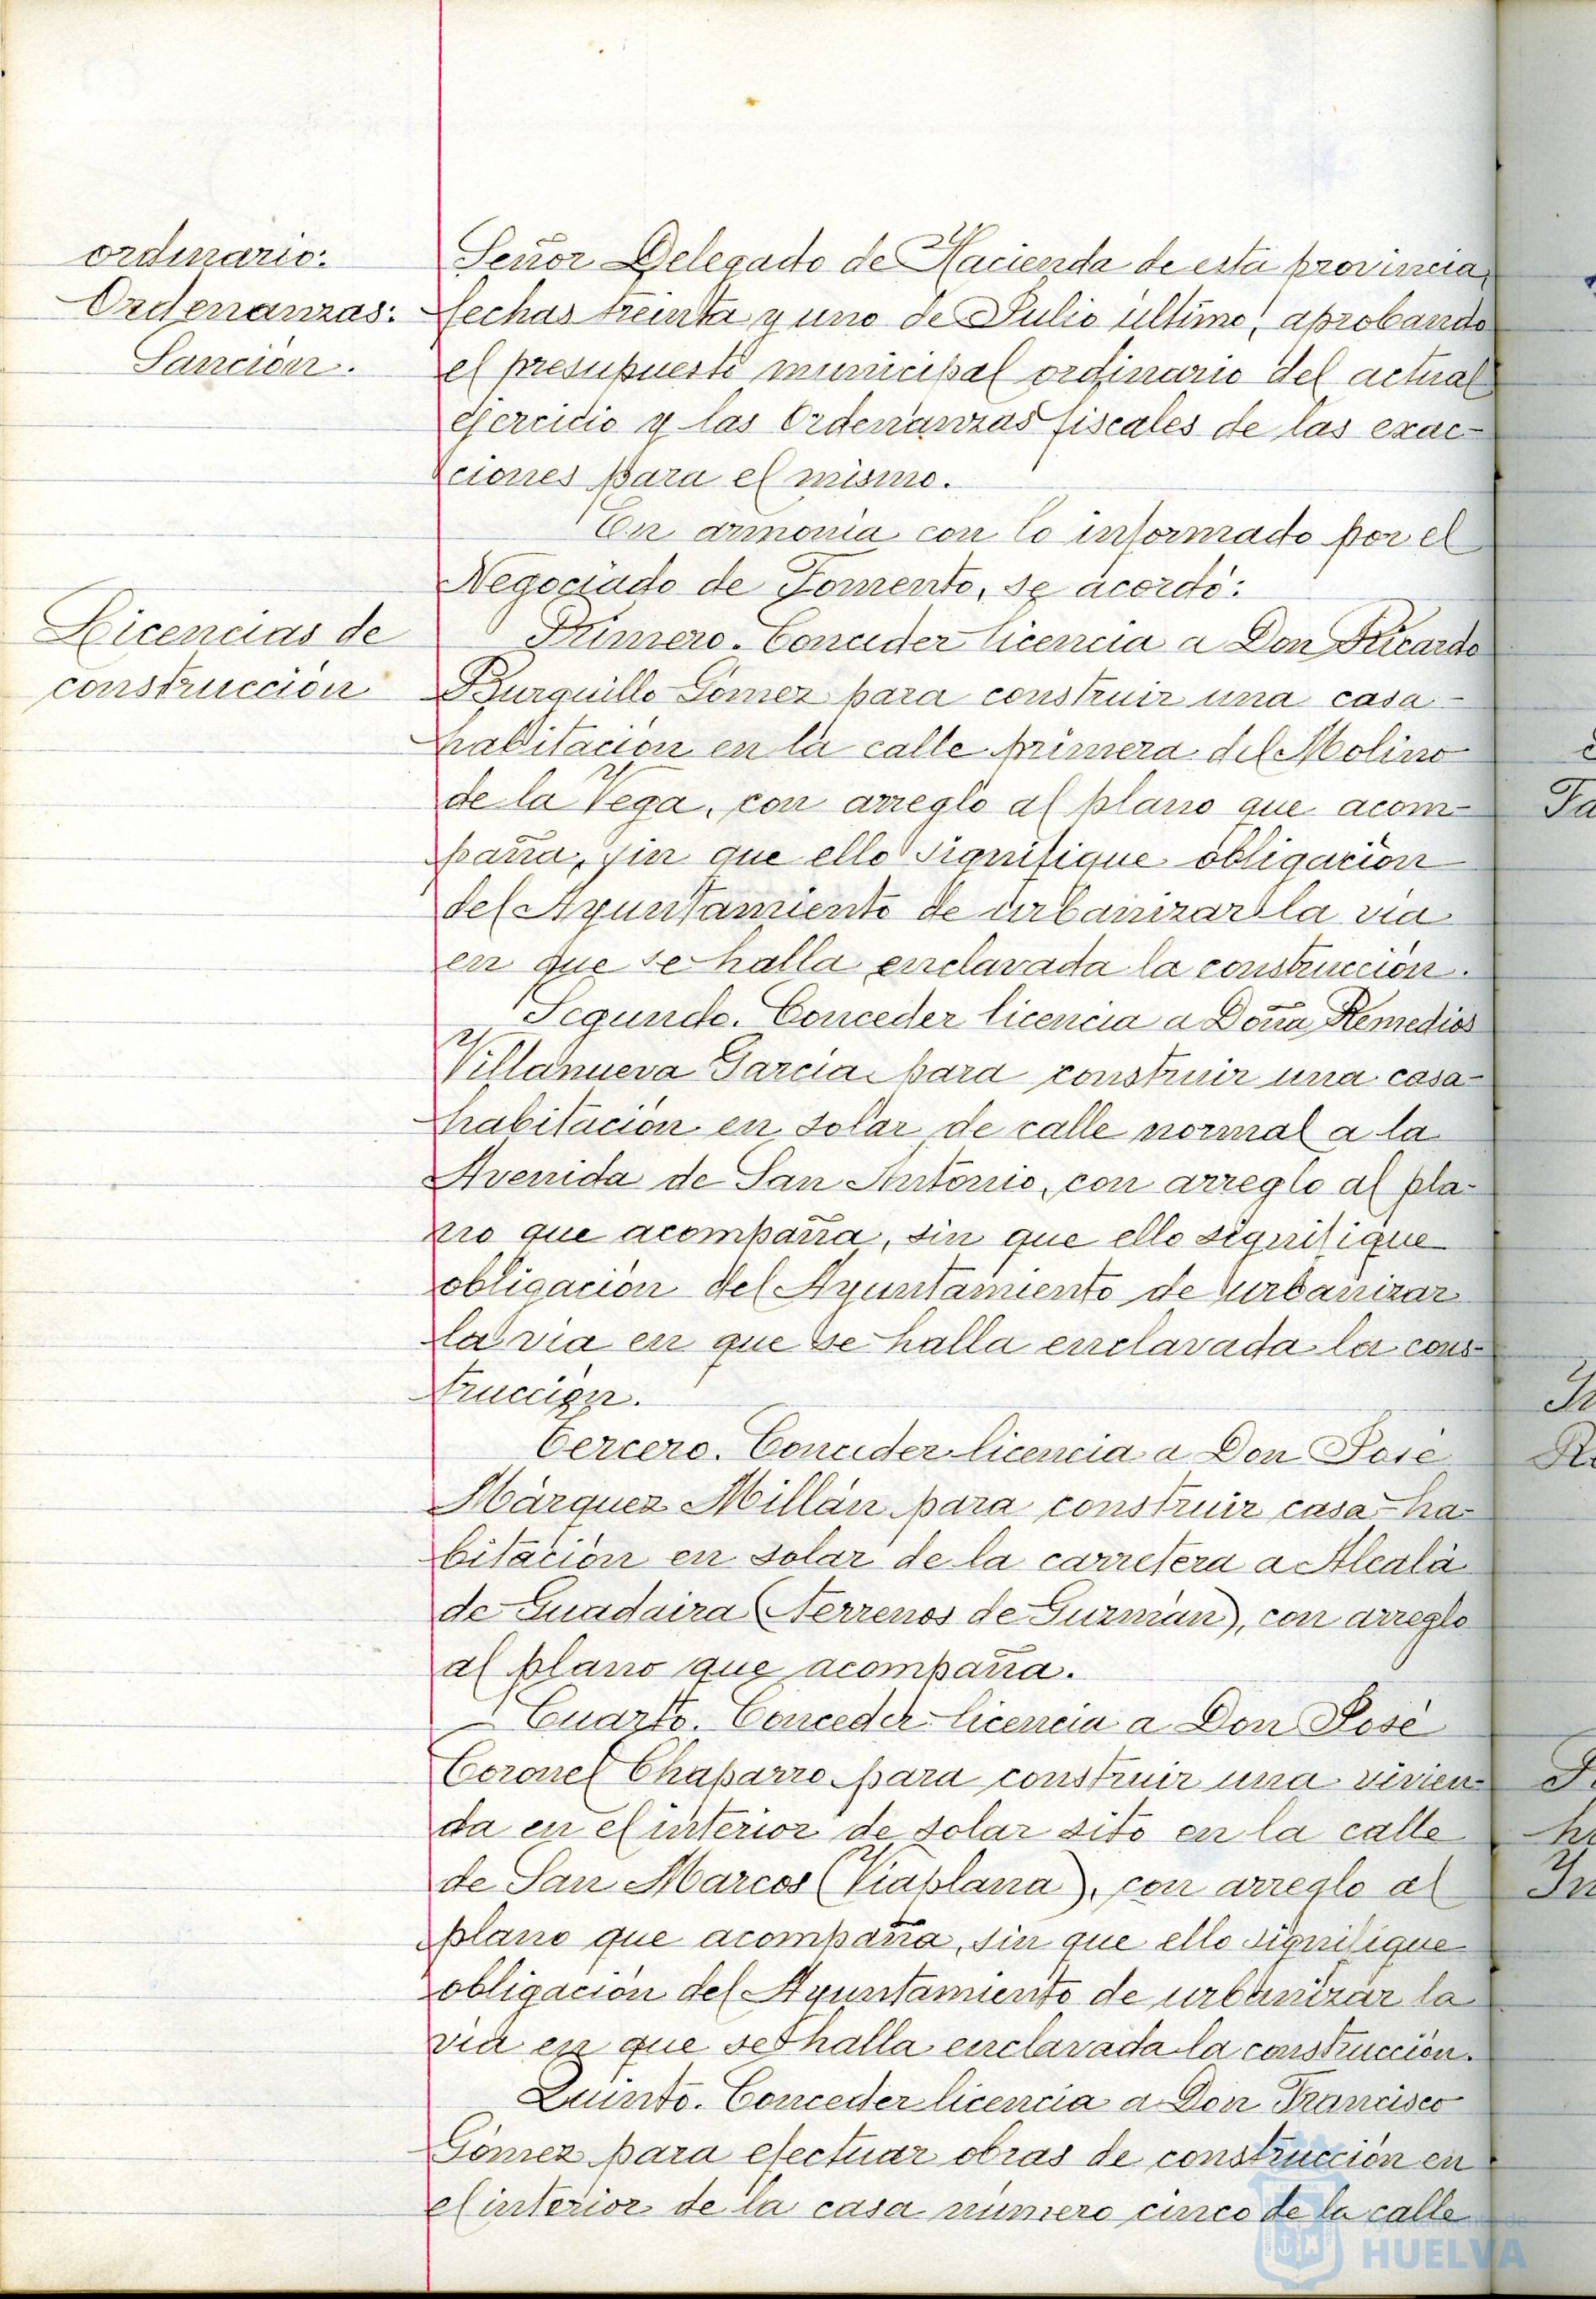 ordinario:
Ordenanzas:
Sanción.
Señor Delegado de Hacienda de esta provincia,
fechas treinta y uno de Julio último, aprobando
el presupuesto municipal ordinario del actual
ejercicio y las Ordenanzas fiscales de las exac-
ciones para el mismo.
En armonía con lo informado por el
Negociado de Fomento, se acordó:
Licencias de
construcción
Primero. Conceder licencia a Don Ricardo
Burquillo Gómez para construir una casa-
habitación en la calle primera del Molino
de la Vega, con arreglo al plano que acom-
paña, sin que ello signifique obligación
del Ayuntamiento de urbanizar la vía
en que se halla enclavada la construcción.
Segundo. Conceder licencia a Doña Remedios
Villanueva García para construir una casa-
habitación en solar de calle normal a la
Avenida de San Antonio, con arreglo al pla-
no que acompaña, sin que ello signifique
obligación del Ayuntamiento de urbanizar
la vía en que se halla enclavada la cons-
trucción.
Tercero. Conceder licencia a Don José
Márquez Millán para construir casa-ha-
bitación en solar de la carretera a Alcalá
de Guadaira (Terrenos de Guzmán), con arreglo
al plano que acompaña.
Cuarto. Conceder licencia a Don José
Coronel Chaparro para construir una vivien-
da en el interior de solar sito en la calle
de San Marcos (Viaplana), con arreglo al
plano que acompaña, sin que ello signifique
obligación del Ayuntamiento de urbanizar la
vía en que se halla enclavada la construcción.
Quinto. Conceder licencia a Don Francisco
Gómez para efectuar obras de construcción en
el interior de la casa número cinco de la calle
Ayuntamiento de
HUELVA